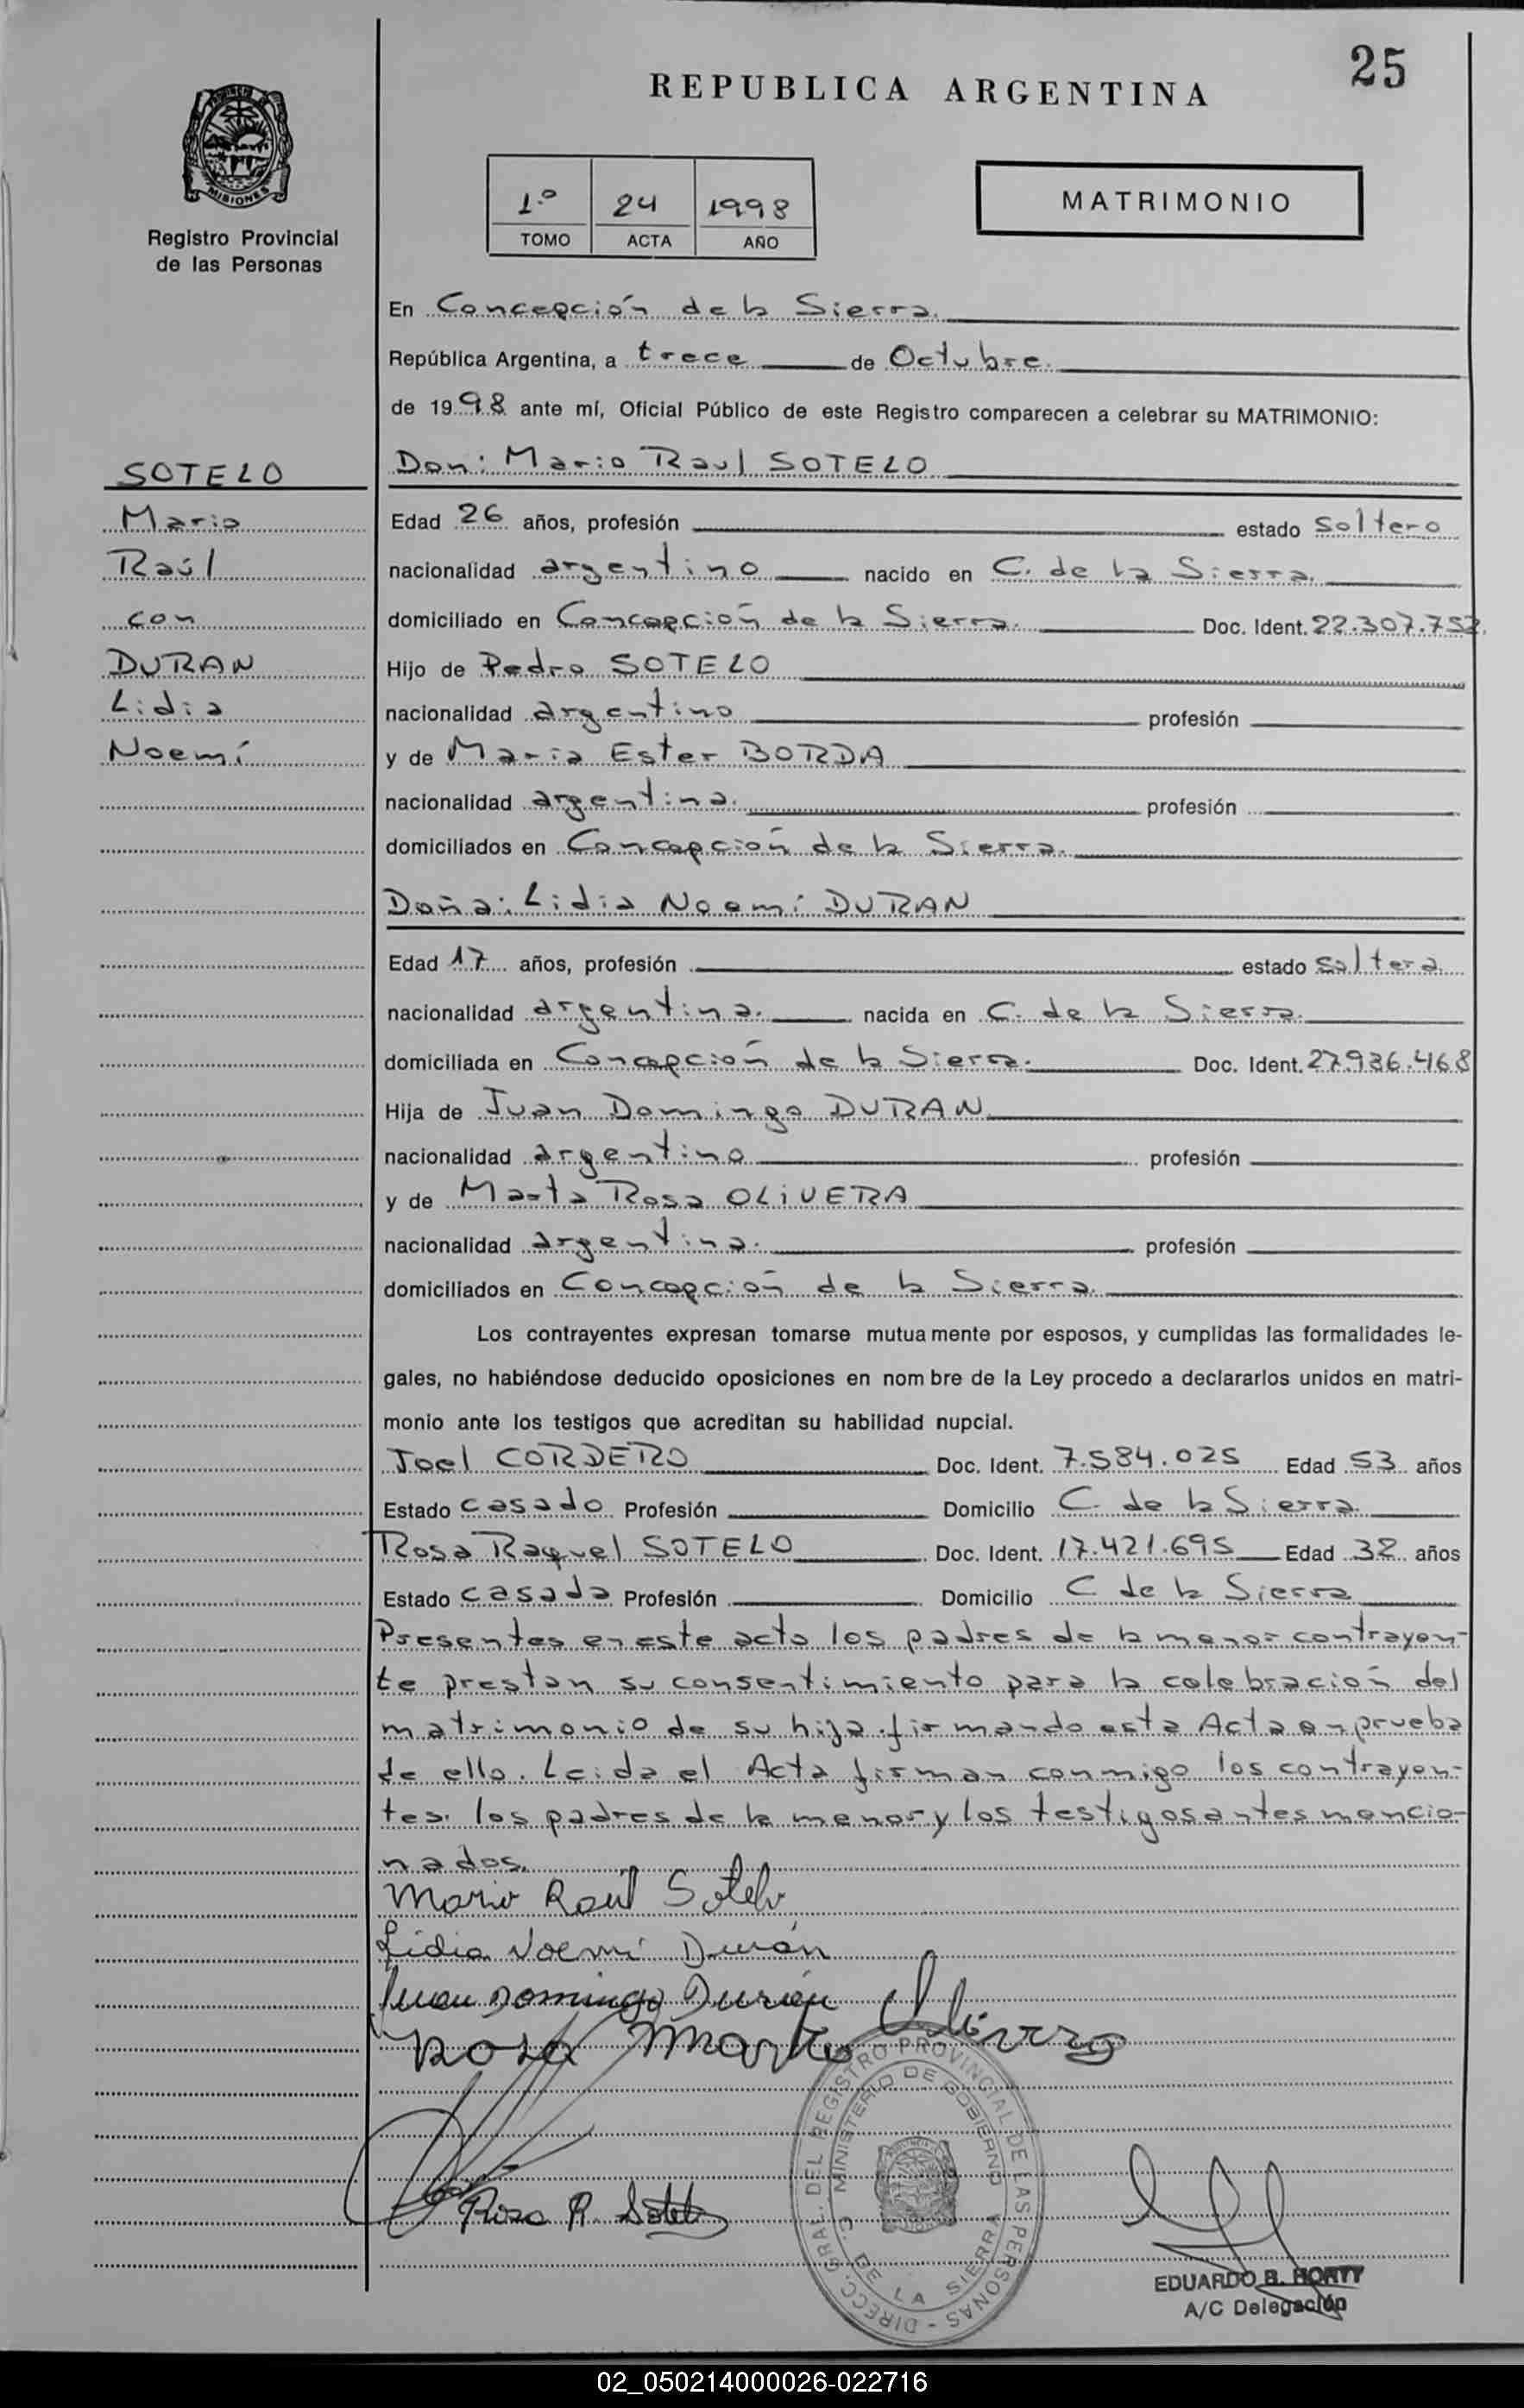 25
REPUBLICA ARGENTINA
MISIONES
Registro Provincial
de las Personas
1º 24 1998
TOMO ACTA AÑO
MATRIMONIO
En Concepción de la Sierra.
República Argentina, a trece de Octubre.
de 1998 ante mí, Oficial Público de este Registro comparecen a celebrar su MATRIMONIO:
SOTELO
Mario
Raúl
con
DURAN
Lidia
Noemí
Don: Mario Raul SOTELO
Edad 26 años, profesión estado soltero
nacionalidad argentino nacido en C. de la Sierra.
domiciliado en Concepción de la Sierra. Doc. Ident. 22.307.752.
Hijo de Pedro SOTELO
nacionalidad argentino profesión
y de Maria Ester BORDA
nacionalidad argentina. profesión
domiciliados en Concepción de la Sierra.
Doña: Lidia Noemí DURAN
Edad 17 años, profesión estado soltera.
nacionalidad argentina. nacida en C. de la Sierra.
domiciliada en Concepción de la Sierra. Doc. Ident. 27.936.468
Hija de Juan Domingo DURAN
nacionalidad argentino profesión
y de Marta Rosa OLIVERA
nacionalidad argentina. profesión
domiciliados en Concepción de la Sierra.
Los contrayentes expresan tomarse mutuamente por esposos, y cumplidas las formalidades le-
gales, no habiéndose deducido oposiciones en nombre de la Ley procedo a declararlos unidos en matri-
monio ante los testigos que acreditan su habilidad nupcial.
Joel CORDERO Doc. Ident. 7.584.025 Edad 53 años
Estado casado Profesión Domicilio C. de la Sierra.
Rosa Raquel SOTELO Doc. Ident. 17.421.695 Edad 32 años
Estado casada Profesión Domicilio C de la Sierra
Presentes en este acto los padres de la menor contrayen-
te prestan su consentimiento para la celebración del
matrimonio de su hija firmando esta Acta en prueba
de ello. Leida el Acta firman conmigo los contrayen-
tes. los padres de la menor y los testigos antes mencio-
nados.
Mario Raúl Sotelo
Lidia Noemí Durán
Juan Domingo Durán
Rosa Marta Olivera
Rosa R. Sotelo
DIRECC. GRAL. DEL REGISTRO PROVINCIAL DE LAS PERSONAS -
MINISTERIO DE GOBIERNO
C. DE LA SIERRA
EDUARDO B. HORTY
A/C Delegación
02_050214000026-022716